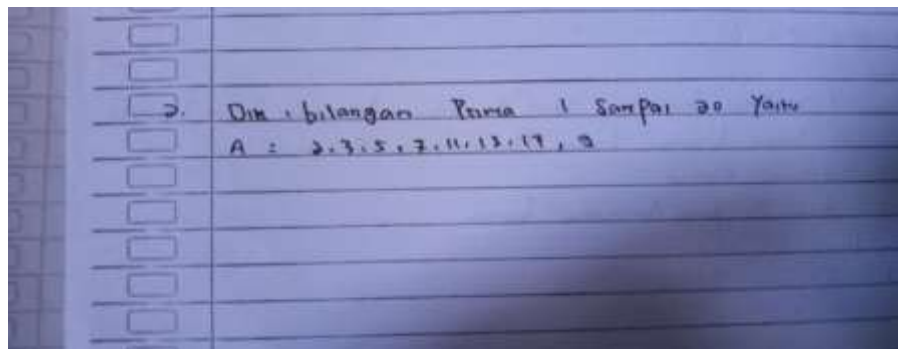 2. Dik : bilangan Prima 1 Sampai 20 Yaitu
A = 2, 3, 5, 7, 11, 13, 17, 9